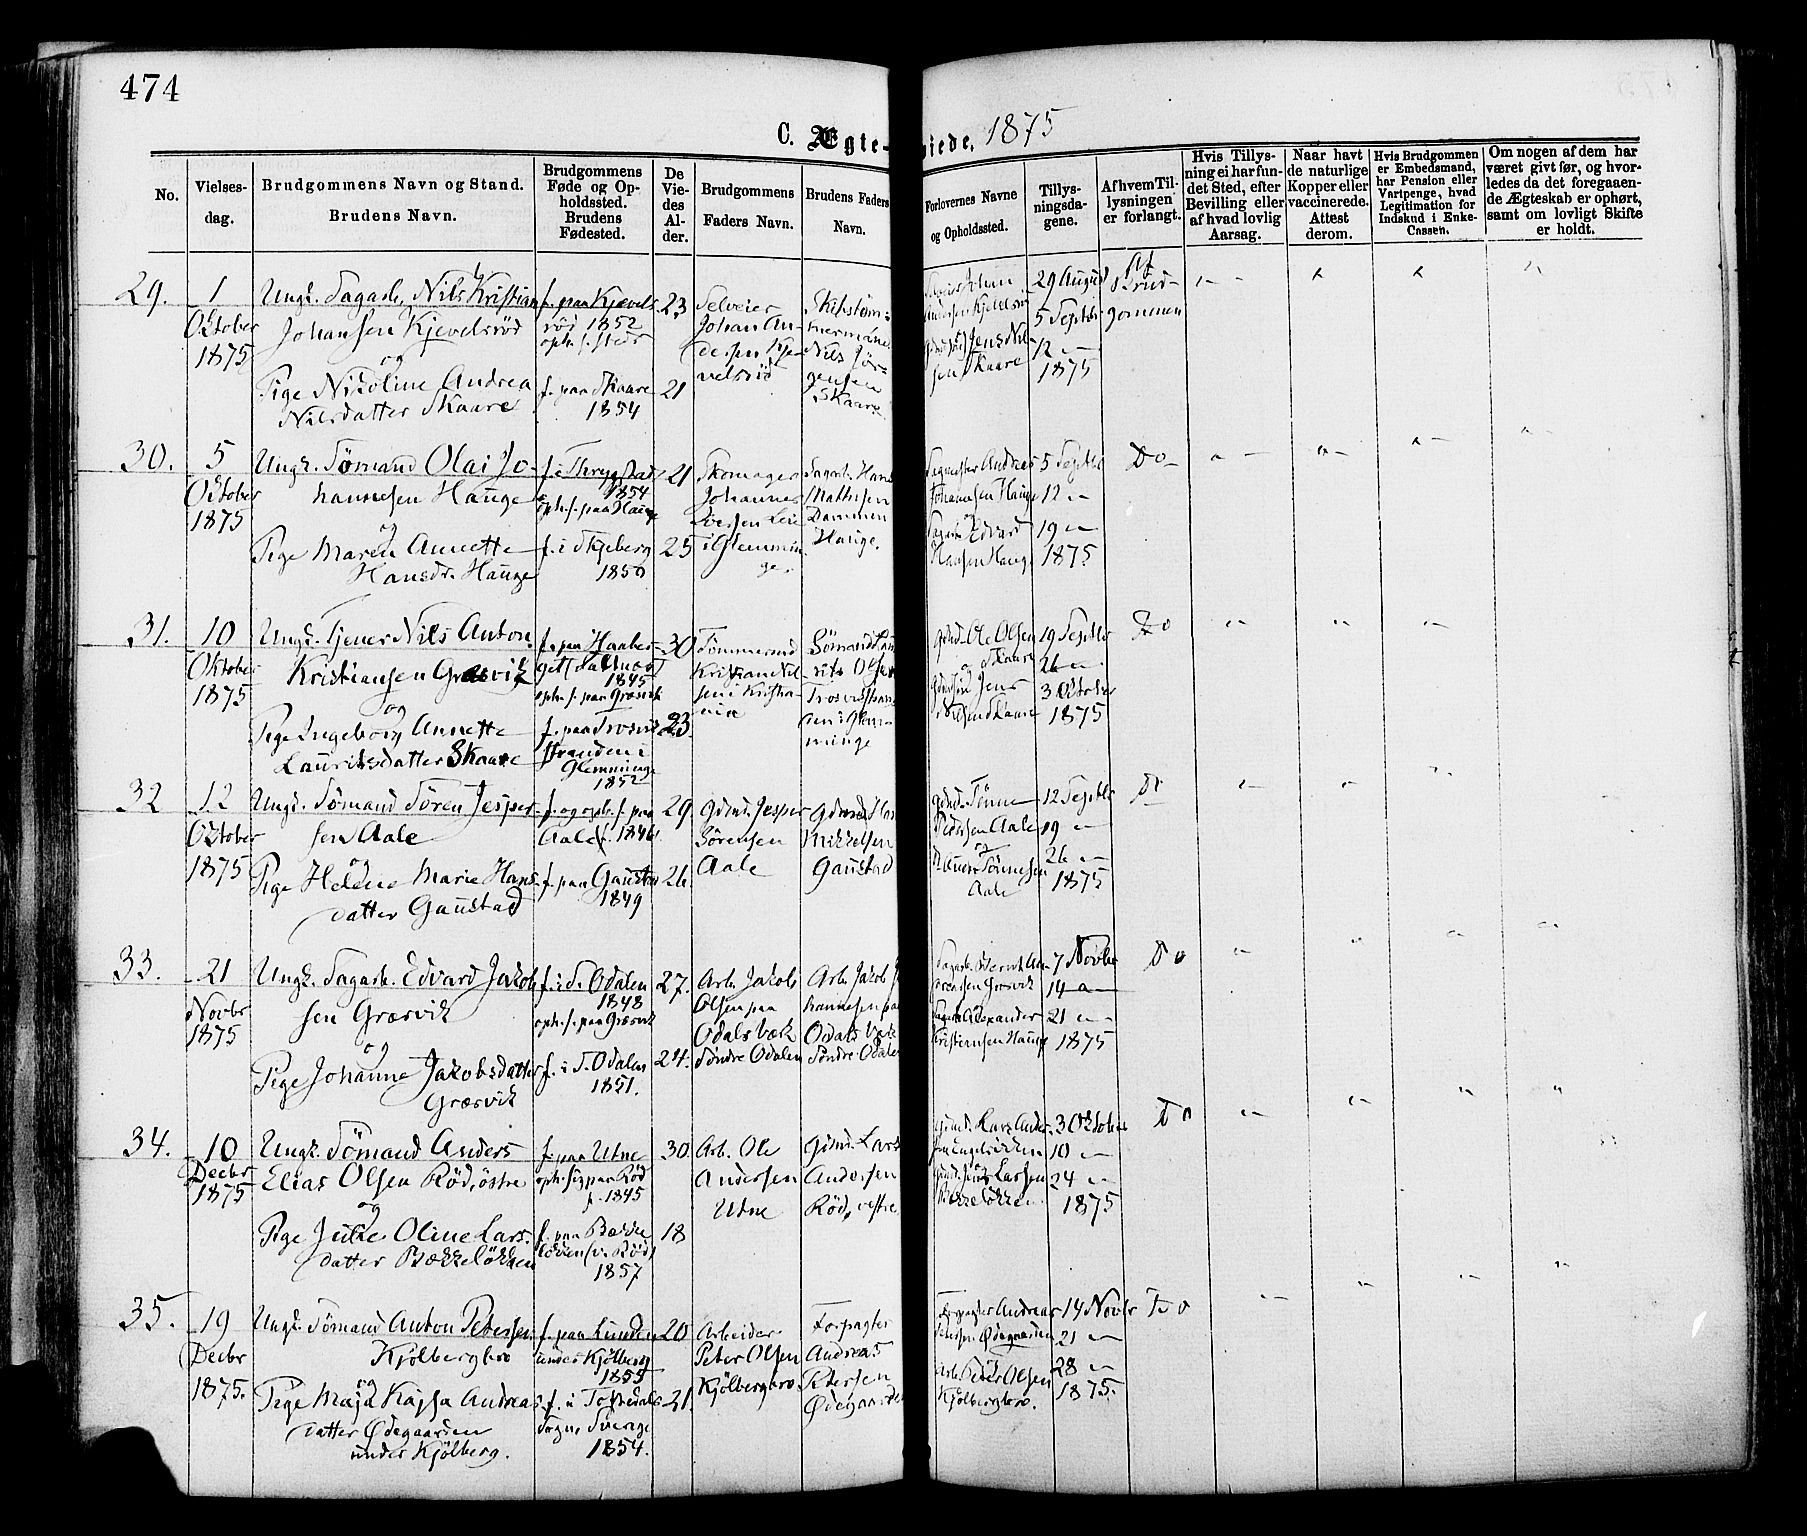 474
C. Ægte-viede, 1875
No.
Vielses-
dag.
Brudgommens Navn og Stand.
Brudens Navn.
Brudgommens
Føde og Op-
holdssted.
Brudens
Fødested.
De
Vie-
des
Al-
der.
Brudgommens
Faders Navn.
Brudens Faders
Navn.
Forlovernes Navne
og Opholdssted.
Tillys-
ningsda-
gene.
Af hvem Til-
lysningen
er forlangt.
Hvis Tillys-
ning ei har fun-
det Sted, efter
Bevilling eller
af hvad lovlig
Aarsag.
Naar havt
de naturlige
Kopper eller
vaccinerede.
Attest
derom.
Hvis Brudgommen
er Embedsmand,
har Pension eller
Vartpenge, hvad
Legitimation for
Indskud i Enke-
Cassen.
Om nogen af dem har
været givt før, og hvor-
ledes da det foregaaen-
de Ægteskab er ophørt,
samt om lovligt Skifte
er holdt.
29.
1
Oktober
1875
Ungk. Sagarb. Nils Kristian
Johansen Kjevelsröd
og
Pige Nicoline Andrea
Nilsdatter Skaare
f. paa Kjevels-
röd 1852
oph. s. steds
f. paa Skaare
1854
23
21
Selveier
Johan An-
dersen Kje-
velsröd
Skibstöm-
mermand
Nils Jör-
gensen
Skaare
Selveier Johan
Andersen Kjevelsröd
Jens Nil-
sen Skaare
29 August
5 Septbr
12 "—
1875
Af
Brud-
gommen
30.
5
Oktober
1875
Ungk. Sömand Olai Jo-
hannesen Hauge
og
Pige Maren Annette
Hansdr. Hauge
f. i Thrygstad
1854
oph. s. paa Hauge
f. i Skjeberg
1850
21
25
Skomager
Johannes
Iversen Lie
i Glemmin-
ge.
Sagarb. Hans
Mathisen
Dammen
Hauge.
Sagmester Andreas
Johannsen Hauge
og
Sagarb. Edvard
Hansen Hauge
5 Septbr
12 "—
19 "—
1875
Do
31.
10
Oktober
1875
Ungk. Tjener Nils Anton
Kristiansen Græsvik
og
Pige Ingeborg Annette
Lauritsdatter Skaare
f. paa Haaber-
get
1845
oph. s. paa Græsvik
f. paa Trosvik
stranden i
Glemminge
1852
30
23
Tömmermd
Kristian Nil-
sen i Kristia-
nia
Sömand Lau-
rits Olsen
Trosvikstran-
den i Glem-
minge
Gdmd. Ole Olsen
Skaare
og
Gdmd. Jens
Nilsen Skaare
19 Septbr
26 "—
3 Oktober
1875
Do
32
12
Oktober
1875
Ungk. Sömand Sören Jesper-
sen Aale
og
Pige Helene Marie Hans-
datter Gaustad
f. og oph. s. paa
Aale f. 1846
f. paa Gaustad
1849
29
26
Gdmd. Jesper
Sörensen
Aale
Gdmd. Hans
Mikkelsen
Gaustad
Gdmd. Tönne
Pedersen Aale
og
Tönnesen
Aale
12 Septbr
19 "—
26 "—
1875
Do
33.
21
Novbr
1875
Ungk. Sagarb. Edvard Jakob-
sen Græsvik
og
Pige Johanne Jakobsdatter
Græsvik
f. i S. Odalen
1848
oph. s. paa Græsvik
f. i S. Odalen
1851.
27.
24.
Arb. Jakob
Olsen paa
Odals Værk
Söndre Odalen
Arb. Jakob Jo-
hannesen paa
Odals Værk
Söndre Odalen
Sagarb. Bernt An-
Græsvik
Sagarb. Alexander
Kristiansen Hauge
7 Novbr
14 "—
21 "—
1875
Do
34.
10
Decbr
1875
Ungk. Sömand Anders
Elias Olsen Röd, östre
og
Pige Julie Oline Lars-
datter Bækkelökken
f. paa Utne
oph. sig paa Röd
f. 1845
f. paa Bække
lökken (v. Röd)
1857
30
18
Arb. Ole
Andersen
Utne
Gdmd. Lars
Andersen
Röd, vestre
Gdmd. Lars Ander-
sen Engelsvikken
Lassen
Bækkelökken
3 Oktober
10 "—
24 "—
1875
Do
35.
19
Decbr
1875.
Ungk. Sömand Anton Petersen
Kjölbergbro
og
Pige Maja Kajsa Andreas-
datter Ödegaarden
under Kjölberg.
f. paa Lunden
under Kjölberg
1855
f. i Töftedals
Sogn, Sverige
1854.
20
21.
Arbeider
Peter Olsen
Kjölbergbro.
Forpagter
Andreas
Petersen
Ödegaarden
Forpagter Andreas
Petersen Ödegaarden
og
Arb. Peter Olsen
Kjölbergbro.
14 Novbr
21 "—
28 "—
1875.
Do